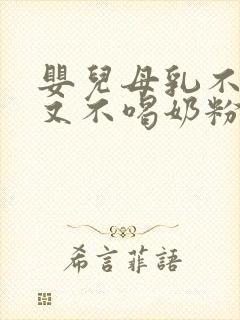 嬰兒母乳不
又不喝奶粉
希言菲語